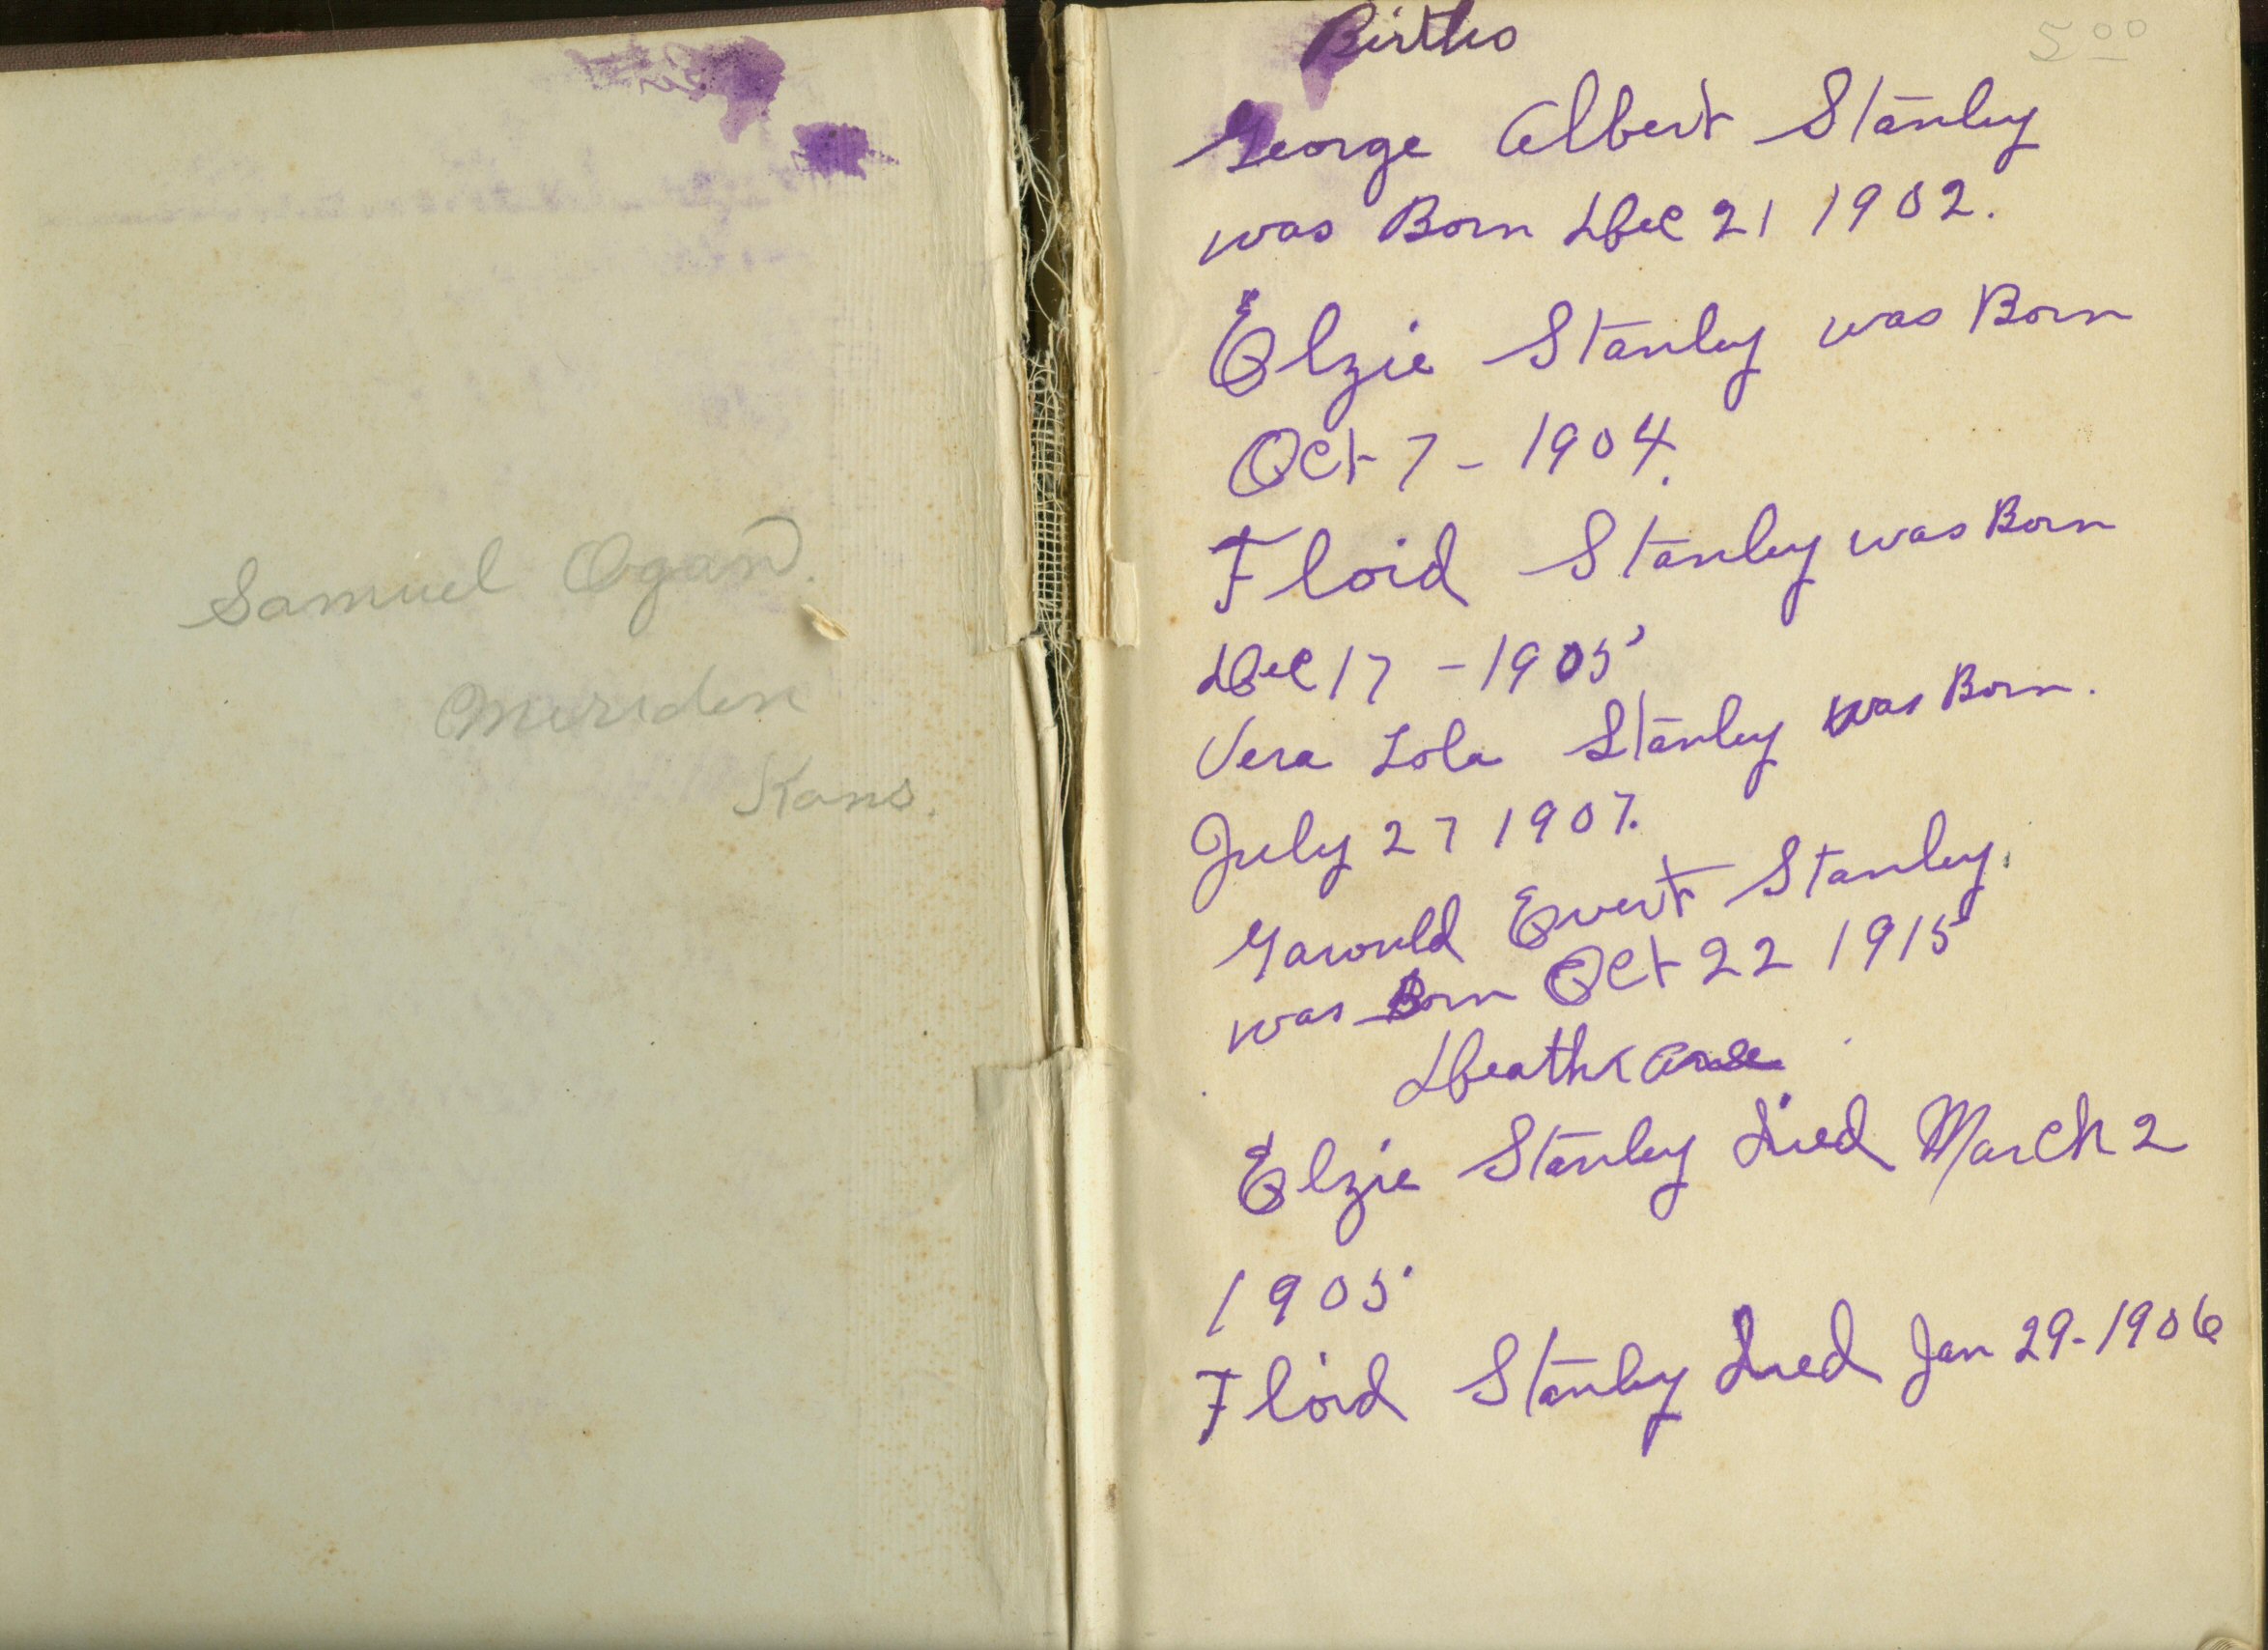 Samuel Ogan.
Meriden
Kans.
5 00
Births
George Albert Stanley
was Born Dec 21 1902.
Elzie Stanley was Born
Oct 7 - 1904.
Floid Stanley was Born
Dec 17 - 1905
Vera Lola Stanley was Born.
July 27 1907.
Garould Evert Stanley.
was Born Oct 22 1915
Deaths
Elzie Stanley Died March 2
1905
Floid Stanley Died Jan 29-1906